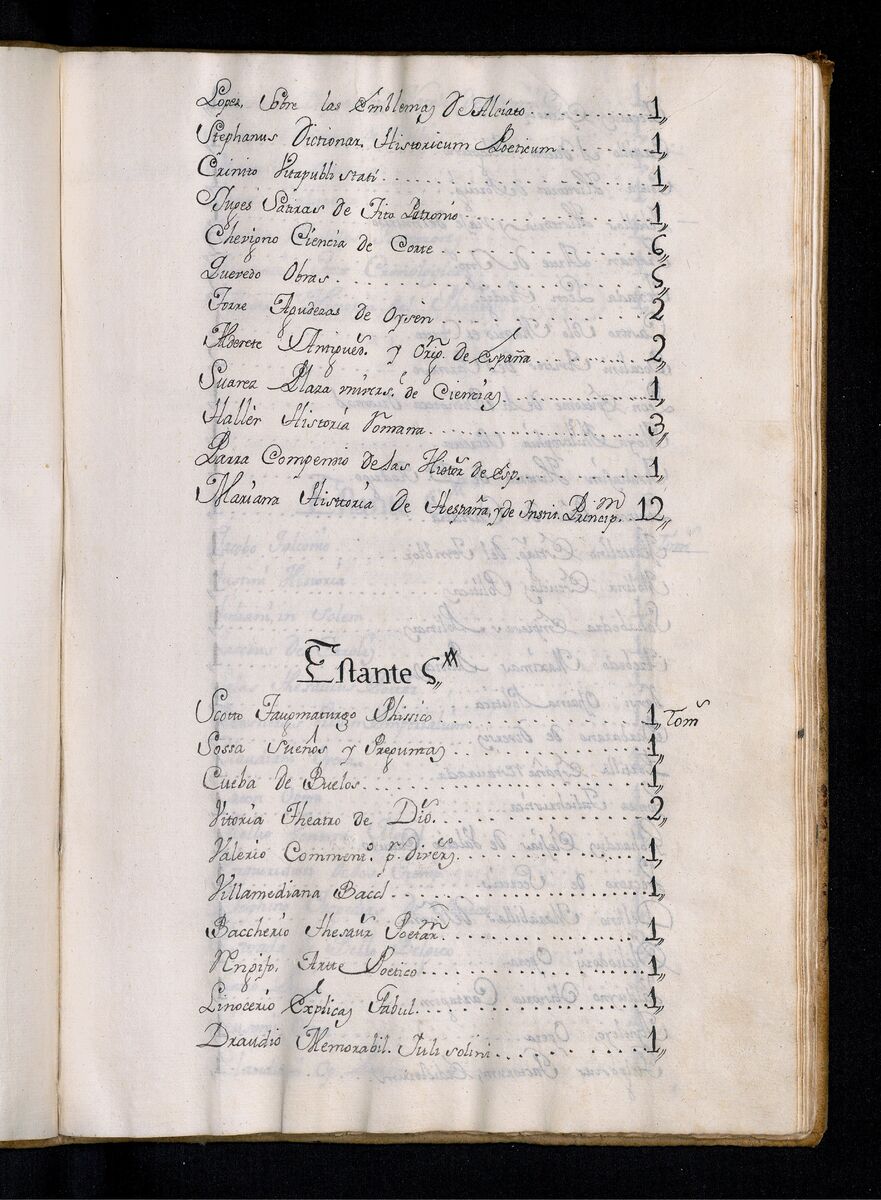 Lopez, Sobre las Emblemas De Alciato . . . . . . . . . . 1,,
Stephanus Dictionar. Historicum Poeticum . . . . . . . 1,,
Crinito Vitapubli stati . . . . . . . . . . . . . . . . . . . . 1,,
Satiras de Tito Petronio . . . . . . . . . . . . . . 1,,
Chevigno Ciencia de Corte . . . . . . . . . . . . . . . . 6,,
Quevedo Obras . . . . . . . . . . . . . . . . . . . . . . . . 5,,
Torre Agudezas de Oysen . . . . . . . . . . . . . . . . . 2,,
Alderete Antigued.s y Orig. de España . . . . . . . . . 2,,
Suarez Plaza univers.l de Ciencias . . . . . . . . . . . . 1,,
Haller Historia Romana . . . . . . . . . . . . . . . . . . 3,,
Parra Compennio de las Histor.s de Esp. . . . . . . . 1,,
Mariana Historia de Hespaña, y de Instit. Princip.m . . 12,,
Estante 5,,
Scotto Taugmaturgo Phissico . . . . . . . . . . . . . . . 1,, Tom.s
Sossa Sueños y Preguntas . . . . . . . . . . . . . . . . . 1,,
Cueba de Buelos . . . . . . . . . . . . . . . . . . . . . . . 1,,
Vitoria Theatro de Dio.s . . . . . . . . . . . . . . . . . . 2,,
Valerio Comment.o p.r divers. . . . . . . . . . . . . . . 1,,
Villamediana . . . . . . . . . . . . . . . . . . . . . . 1,,
Baccherio thesaur Poetar. . . . . . . . . . . . . . . . . . 1,,
Artte Poetico . . . . . . . . . . . . . . . . . . . . 1,,
Linocerio Explicas Fabul. . . . . . . . . . . . . . . . . . 1,,
Draudio Memorabil. Juli solini . . . . . . . . . . . . . . 1,,